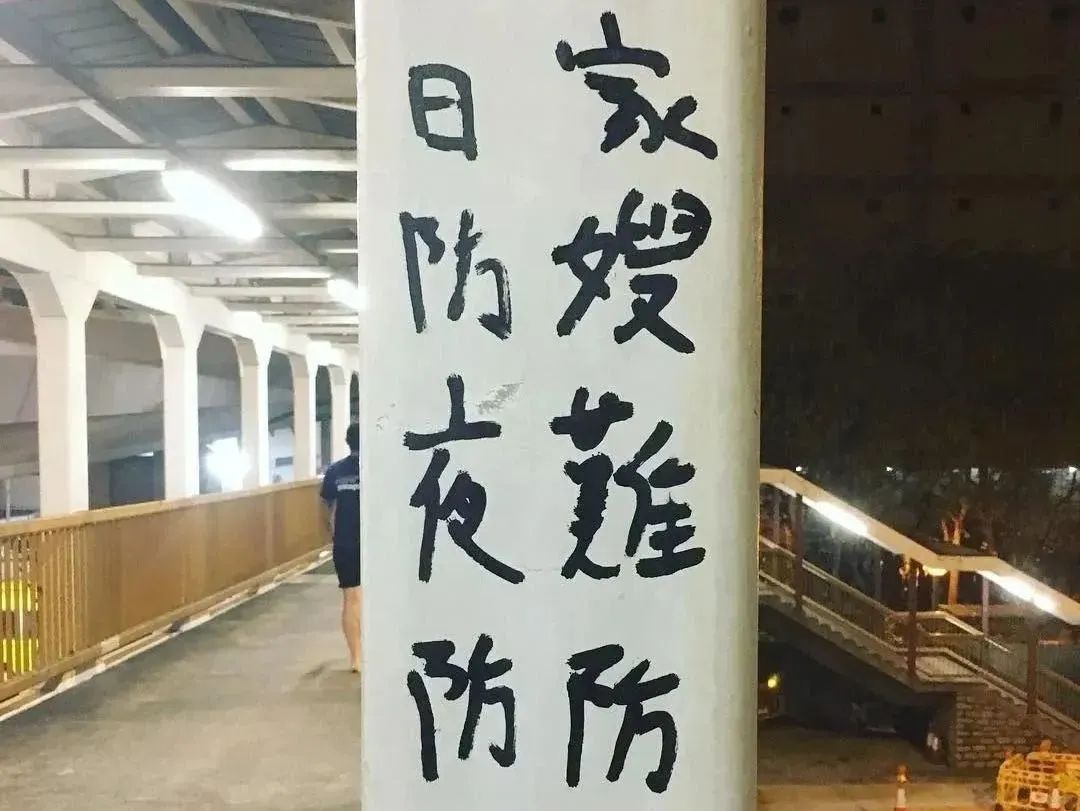 日防夜防
家嫂難防